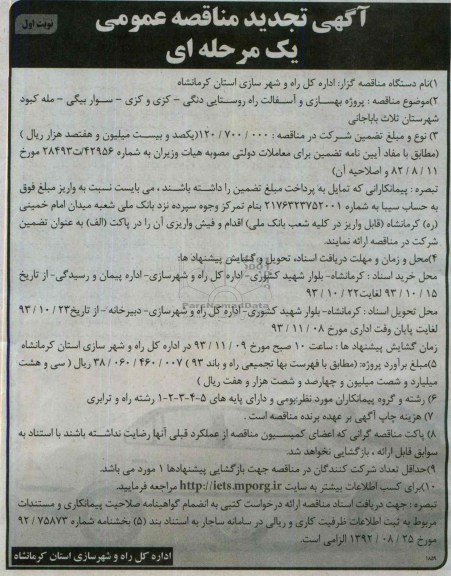 آگهی تجدید مناقصه عمومی
یک مرحله ای
نوبت اول
۱)نام دستگاه مناقصه گزار: اداره کل راه و شهر سازی استان کرمانشاه
۲)موضوع مناقصه : پروژه بهسازی و آسفالت راه روستایی دنگی - کزی و کزی - سوار بیگی - مله کبود
شهرستان ثلاث باباجانی
۳) نوع و مبلغ تضمین شرکت در مناقصه : ۱۲۰/۷۰۰/۰۰۰(یکصد و بیست میلیون و هفتصد هزار ریال )
(مطابق با مفاد آیین نامه تضمین برای معاملات دولتی مصوبه هیات وزیران به شماره ۴۲۹۵۶/ت۲۸۴۹۳ مورخ
۸۲/۸/۱۱ و اصلاحیه آن)
تبصره : پیمانکارانی که تمایل به پرداخت مبلغ تضمین را داشته باشند ، می بایست نسبت به واریز مبلغ فوق
به حساب سیبا به شماره ۲۱۷۶۲۲۳۷۵۲۰۰۱ بنام تمرکز وجوه سپرده نزد بانک ملی شعبه میدان امام خمینی
(ره) کرمانشاه (قابل واریز در کلیه شعب بانک ملی) اقدام و فیش واریزی آن را در پاکت (الف) به عنوان تضمین
شرکت در مناقصه ارائه نمایند.
۴)محل و زمان و مهلت دریافت اسناد، تحویل و گشایش پیشنهاد ها:
محل خرید اسناد : کرمانشاه- بلوار شهید کشوری- اداره کل راه و شهرسازی- اداره پیمان و رسیدگی- از تاریخ
۹۳/۱۰/۱۵ لغایت ۹۳/۱۰/۲۲
محل تحویل اسناد : کرمانشاه- بلوار شهید کشوری- اداره کل راه و شهرسازی- دبیرخانه - از تاریخ ۹۳/۱۰/۲۳
لغایت پایان وقت اداری مورخ ۹۳/۱۱/۰۸
زمان گشایش پیشنهاد ها : ساعت ۱۰ صبح مورخ ۹۳/۱۱/۰۹ در اداره کل راه و شهر سازی استان کرمانشاه
۵)مبلغ برآورد پروژه: (مطابق با فهرست بها تجمیعی راه و باند ۹۳ ) ۳۸/۰۶۰/۴۶۰/۰۰۷ ریال ( سی و هشت
میلیارد و شصت میلیون و چهارصد و شصت هزار و هفت ریال )
۶) رشته و گروه پیمانکاران مورد نظر:بومی و دارای پایه های ۵-۴-۳-۲-۱ رشته راه و ترابری
۷) هزینه چاپ آگهی بر عهده برنده مناقصه است .
۸) پاکت مناقصه گرانی که اعضای کمیسیون مناقصه از عملکرد قبلی آنها رضایت نداشته باشند با استناد به
سوابق قابل ارائه ، بازگشایی نخواهد شد.
۹)حداقل تعداد شرکت کنندگان در مناقصه جهت بازگشایی پیشنهادها ۱ مورد می باشد.
۱۰)برای کسب اطلاعات بیشتر به سایت http://iets.mporg.ir مراجعه فرمایید.
تبصره : جهت دریافت اسناد مناقصه ارائه درخواست کتبی به انضمام گواهینامه صلاحیت پیمانکاری و مستندات
مربوط به ثبت اطلاعات ظرفیت کاری و ریالی در سامانه ساجار به استناد بند (۵) بخشنامه شماره ۹۲/۷۵۸۷۳
مورخ ۱۳۹۲/۰۸/۲۵ الزامی است.
اداره کل راه و شهرسازی استان کرمانشاه
ParsNamadData